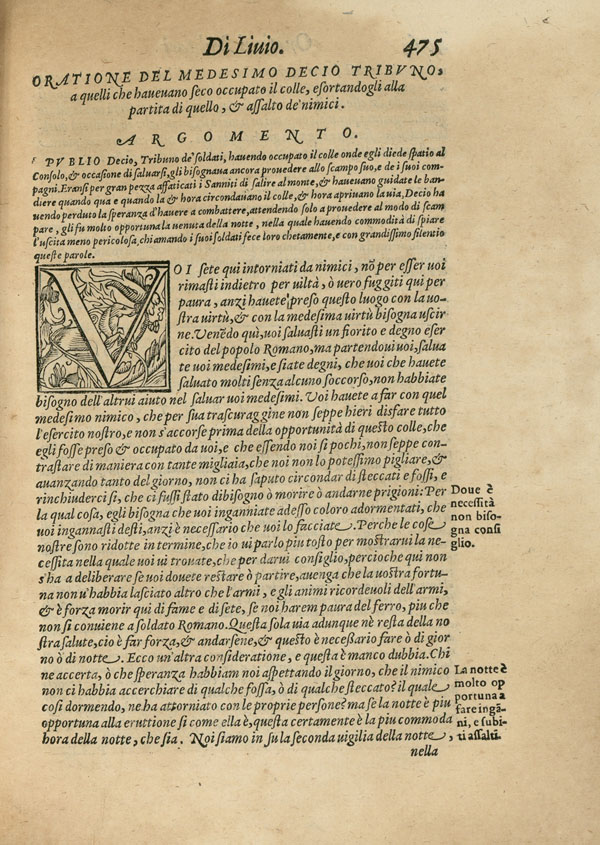 Di Liuio.
475
ORATIONE DEL MEDESIMO DECIO TRIBVNO,
a quelli che haueuano seco occupato il colle, esortandogli alla
partita di quello, & assalto de' nimici.
ARGOMENTO.
PVBLIO Decio, Tribuno de' soldati, hauendo occupato il colle onde egli diede spatio al
Consolo, & occasione di saluarsi, gli bisognaua ancora prouedere allo scampo suo, e de i suoi com-
pagni. Eransi per gran pezza affaticati i Sanniti di salire al monte, & haueuano guidate le ban-
diere quando qua e quando la & hora circondauano il colle, & hora apriuano la uia. Decio ha
uendo perduto la speranza d'hauere a combattere, attendendo solo a prouedere al modo di scam
pare, gli fu molto opportuna la uenuta della notte, nella quale hauendo commodità di spiare
l'uscita meno pericolosa, chiamando i suoi soldati fece loro chetamente, e con grandissimo silentio
queste parole.
VOI sete qui intorniati da nimici, nõ per esser uoi
rimasti indietro per uiltà, ò uero fuggiti qui per
paura, anzi hauete preso questo luogo con la uo-
stra uirtù, & con la medesima uirtù bisogna uscir
ne. Venẽdo quì, uoi saluasti un fiorito e degno eser
cito del popolo Romano, ma partendoui uoi, salua
te uoi medesimi, e siate degni, che uoi che hauete
saluato molti senza alcuno soccorso, non habbiate
bisogno dell'altrui aiuto nel saluar uoi medesimi. Voi hauete a far con quel
medesimo nimico, che per sua trascuraggine non seppe hieri disfare tutto
l'esercito nostro, e non s'accorse prima della opportunità di questo colle, che
egli fosse preso & occupato da uoi, e che essendo noi si pochi, non seppe con-
trastare di maniera con tante migliaia, che noi non lo potessimo pigliare, &
auanzando tanto del giorno, non ci ha saputo circondar di steccati e fossi, e
rinchiuderci si, che ci fussi stato dibisogno ò morire ò andarne prigioni: Per
la qual cosa, egli bisogna che uoi inganniate adesso coloro adormentati, che
uoi ingannasti desti, anzi è necessario che uoi lo facciate. Perche le cose
nostre sono ridotte in termine, che io ui parlo piu tosto per mostrarui la ne-
cessita nella quale uoi ui trouate, che per darui consiglio, percioche qui non
s'ha a deliberare se uoi douete restare ò partire, auenga che la uostra fortu-
na non u'habbia lasciato altro che l'armi, e gli animi ricordeuoli dell'armi,
& è forza morir qui di fame e di sete, se noi harem paura del ferro, piu che
non si conuiene a soldato Romano. Questa sola uia adunque nè resta della no
stra salute, cio è far forza, & andarsene, & questo è necessario fare ò di gior
no ò di notte. Ecco un'altra consideratione, e questa è manco dubbia. Chi
ne accerta, ò che speranza habbiam noi aspettando il giorno, che il nimico
non ci habbia accerchiare di qualche fossa, ò di qualche steccato? il quale
cosi dormendo, ne ha attorniato con le proprie persone? ma se la notte è piu
opportuna alla eruttione si come ella è, questa certamente è la piu commoda
hora della notte, che sia. Noi siamo in su la seconda uigilia della notte,
nella
Doue è
necessità
non biso-
gna consi
glio.
La notte è
molto op
portuna a
fare ingã-
ni, e subi-
ti assalti.